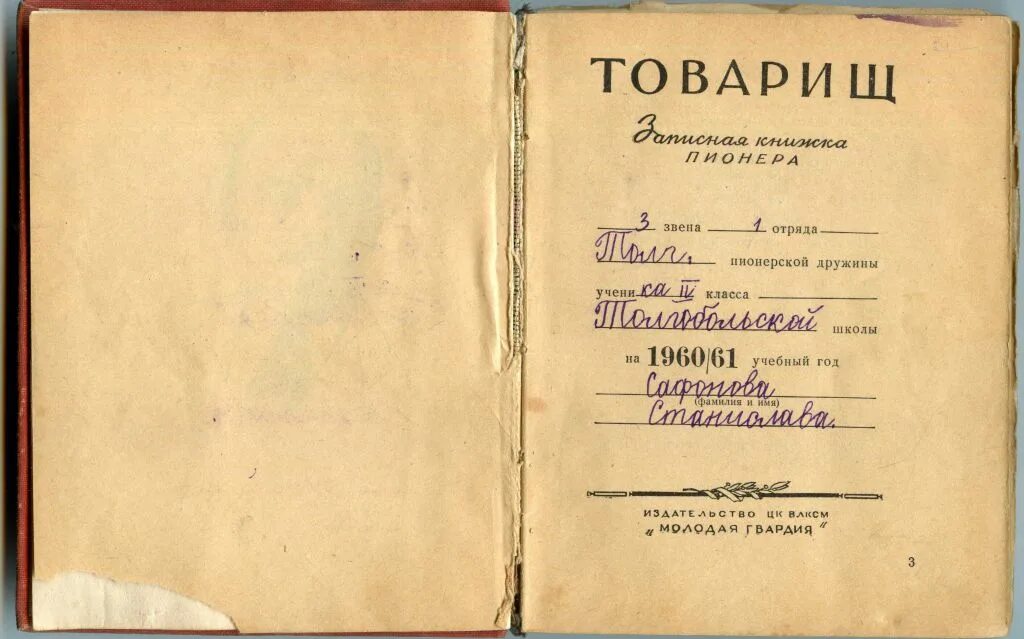 ТОВАРИЩ
Записная книжка
ПИОНЕРА
3 звена 1 отряда
Толг. пионерской дружины
ученика IV класса
Толгобольской школы
на 1960/61 учебный год
Сафонова
(фамилия и имя)
Станислава.
ИЗДАТЕЛЬСТВО ЦК ВЛКСМ
„МОЛОДАЯ ГВАРДИЯ"
3